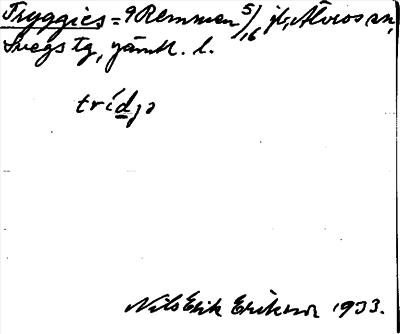 Tryggies = 9 Remmen 5/16 jb, Älvros sn,
Svegs tg, jämtl. l.
trídjə
Nils Erik Erikson 1933.